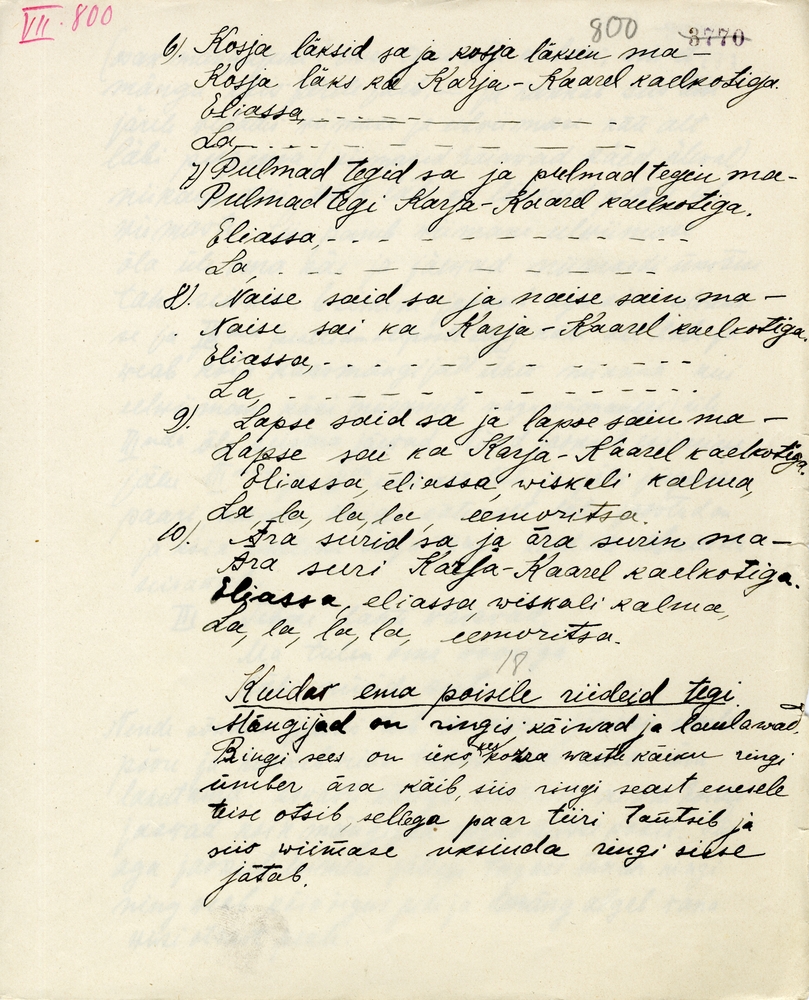 VII. 800
800
3770
6). Kosja läksid sa ja kosja läksin ma —
Kosja läks ka Karja-Kaarel kaelkotiga.
Eliassa, - - - - - - - - - -
La, - - - - - - - - - -
7) Pulmad tegid sa ja pulmad tegen ma -
Pulmad tegi Karja-Kaarel kaelkotiga.
Eliassa, - - - - - - - - - -
La, - - - - - - - - - -
8). Naise said sa ja naise sain ma —
Naise sai ka Karja-Kaarel kaelkotiga.
Eliassa, - - - - - - - - - -
La, - - - - - - - - - -
9). Lapse said sa ja lapse sain ma —
Lapse sai ka Karja-Kaarel kaelkotiga.
Eliassa, eliassa, wiskali kalma,
La, la, la, la, eemoritsa.
10). Ära surid sa ja ära surin ma —
Ära suri Karja-Kaarel kaelkotiga.
Eliassa, eliassa, wiskali kalma,
La, la, la, la, eemoritsa.
18.
Kuidas ema poisile riideid tegi.
Mängijad on ringis käiwad ja laulawad.
Ringi sees on üks, kes korra wastu käiku ringi
ümber ära käib, siis ringi seast enesele
teise otsib, sellega paar tiiri tantsib ja
siis wiimase üksinda ringi sisse
jätab.